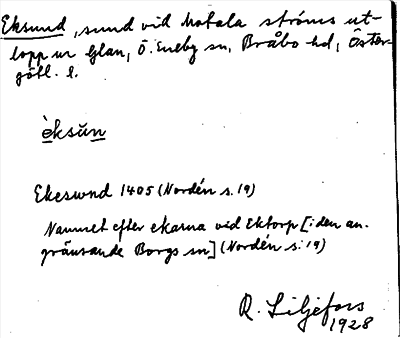 Eksund, sund vid Motala ströms ut-
lopp ur Glan, Ö. Eneby sn, Bråbo hd, Öster-
götl. l.
èksŭn
Ekeswnd 1405 (Nordén s. 19)
Namnet efter ekarna vid Ektorp [i den an-
gränsande Borgs sn] (Nordén s. 19)
R. Liljefors
1928